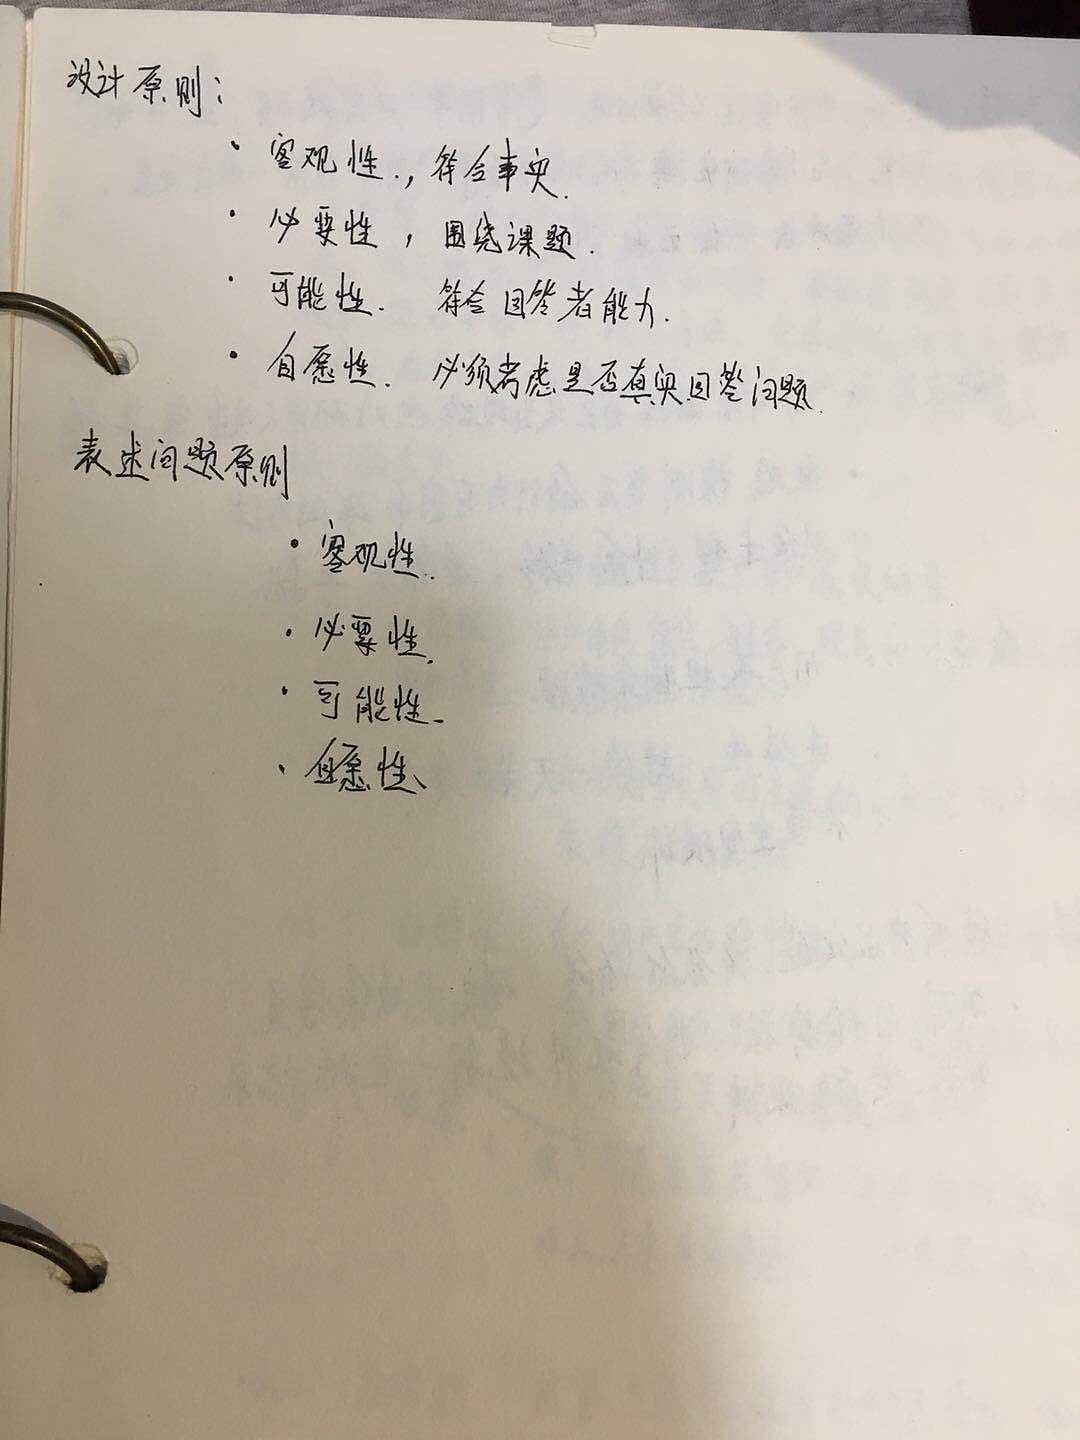 设计原则：
· 客观性.，符合事实.
· 必要性，围绕课题.
· 可能性. 符合回答者能力.
· 自愿性. 必须考虑是否真实回答问题.
表述问题原则
· 客观性.
· 必要性.
· 可能性.
· 自愿性、